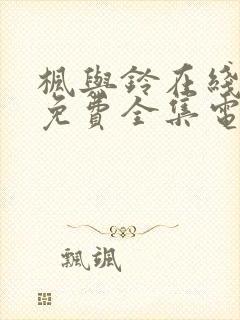 楓與鈴在綫
免費全集電
飄颯